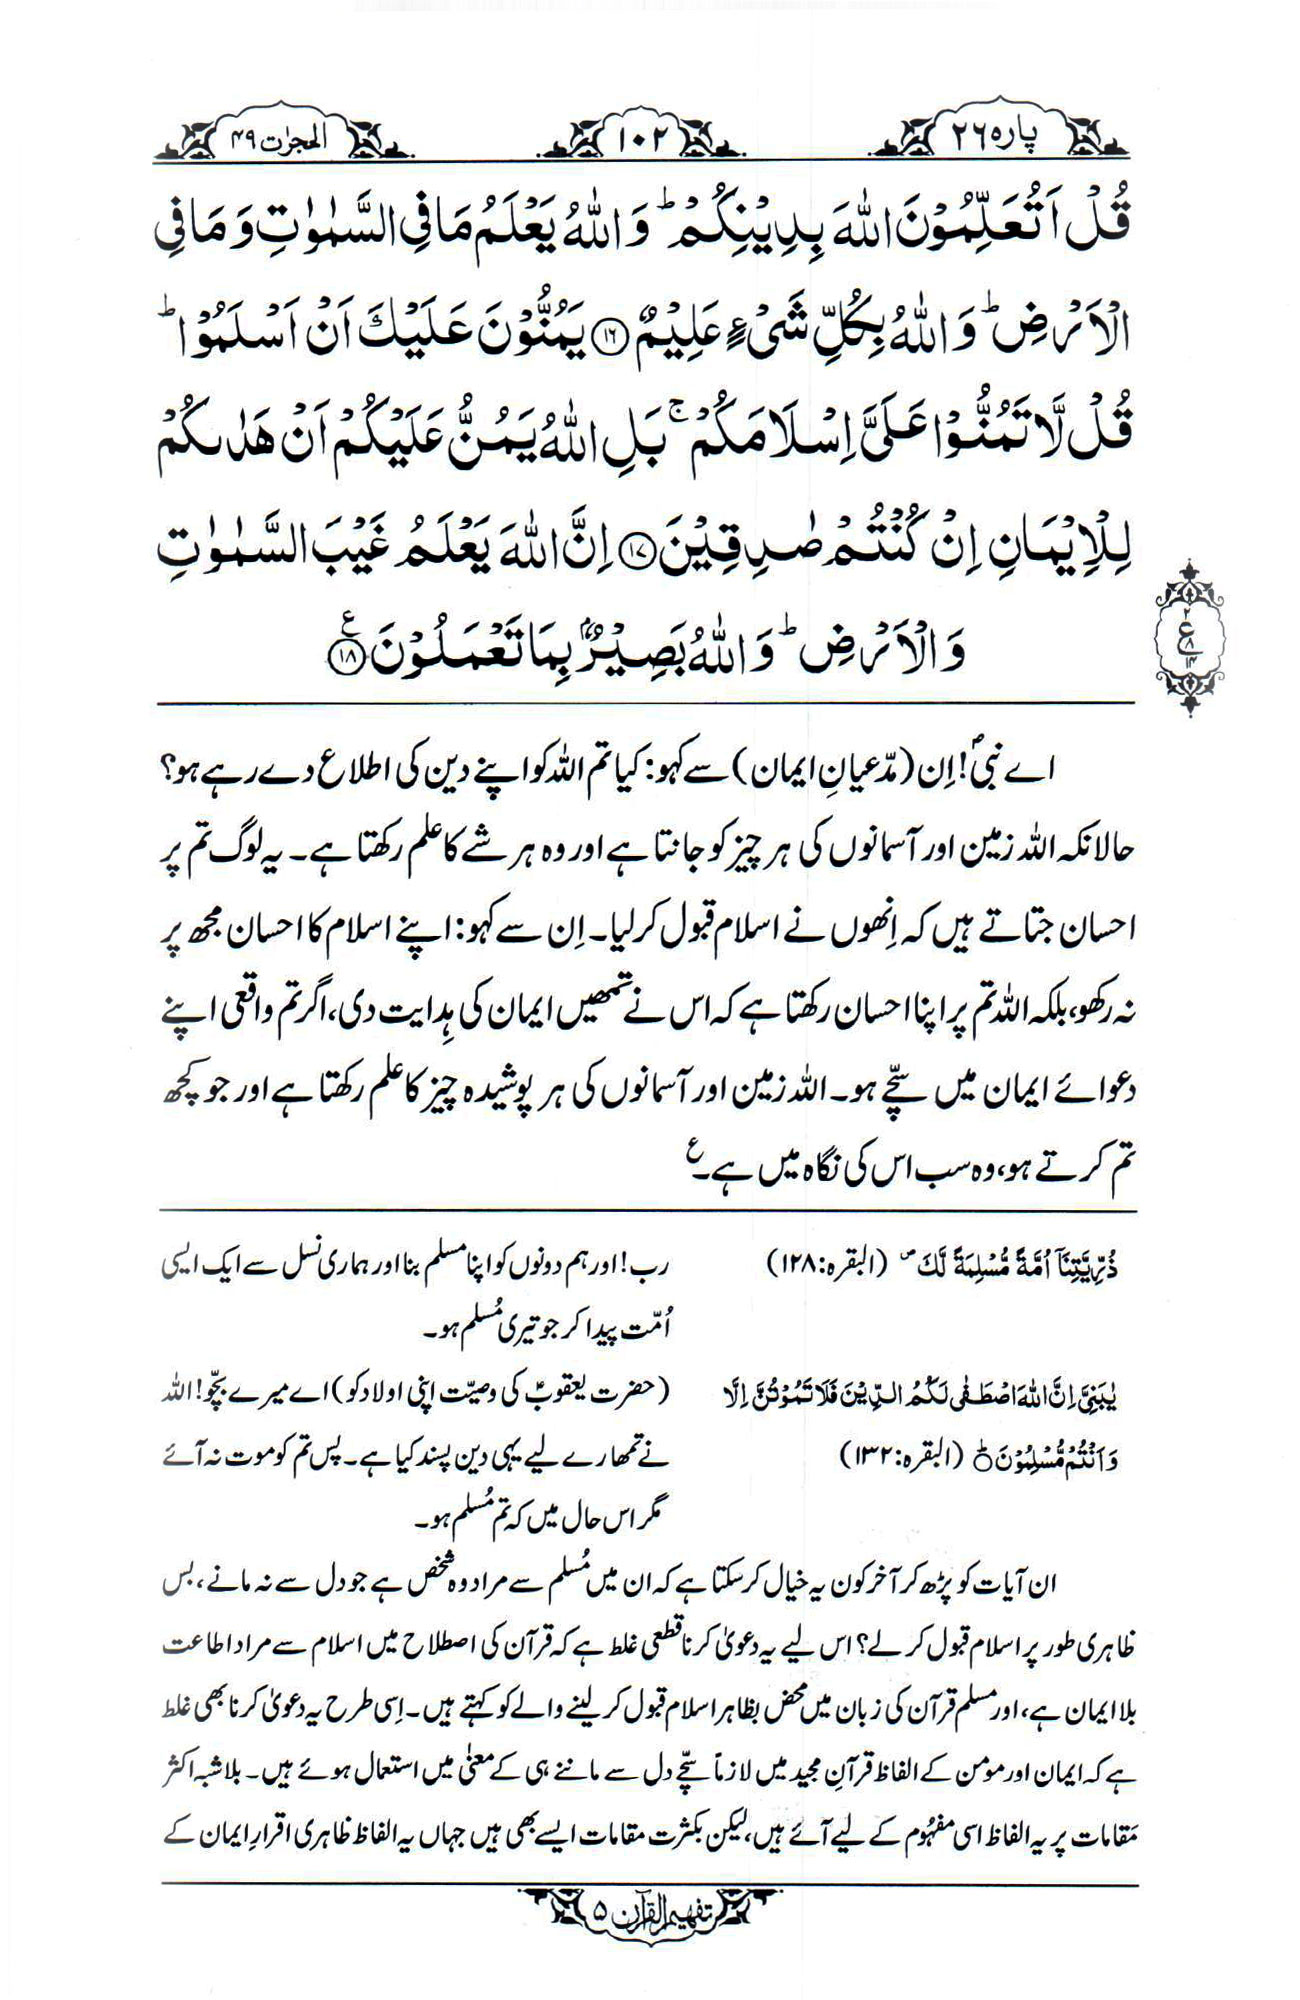 پارہ ۲۶
۱۰۲
الحجرٰت ۴۹
قُلْ اَتُعَلِّمُوْنَ اللّٰهَ بِدِيْنِكُمْ ؕ وَاللّٰهُ يَعْلَمُ مَا فِى السَّمٰوٰتِ وَ مَا فِى
الْاَرْضِ ؕ وَاللّٰهُ بِكُلِّ شَىْءٍ عَلِيْمٌ ۝۱۶ يَمُنُّوْنَ عَلَيْكَ اَنْ اَسْلَمُوْا ؕ
قُلْ لَّا تَمُنُّوْا عَلَىَّ اِسْلَامَكُمْ ۚ بَلِ اللّٰهُ يَمُنُّ عَلَيْكُمْ اَنْ هَدٰىكُمْ
لِلْاِيْمَانِ اِنْ كُنْتُمْ صٰدِقِيْنَ ۝۱۷ اِنَّ اللّٰهَ يَعْلَمُ غَيْبَ السَّمٰوٰتِ
وَالْاَرْضِ ؕ وَاللّٰهُ بَصِيْرٌۢ بِمَا تَعْمَلُوْنَ ۝۱۸ ع
۲
ع
۸
۱۴
اے نبیؐ! اِن (مدّعیانِ ایمان) سے کہو: کیا تم اللہ کو اپنے دین کی اطلاع دے رہے ہو؟
حالانکہ اللہ زمین اور آسمانوں کی ہر چیز کو جانتا ہے اور وہ ہر شے کا علم رکھتا ہے۔ یہ لوگ تم پر
احسان جتاتے ہیں کہ اِنھوں نے اسلام قبول کر لیا۔ اِن سے کہو: اپنے اسلام کا احسان مجھ پر
نہ رکھو، بلکہ اللہ تم پر اپنا احسان رکھتا ہے کہ اس نے تمھیں ایمان کی ہدایت دی، اگر تم واقعی اپنے
دعوائے ایمان میں سچّے ہو۔ اللہ زمین اور آسمانوں کی ہر پوشیدہ چیز کا علم رکھتا ہے اور جو کچھ
تم کرتے ہو، وہ سب اس کی نگاہ میں ہے۔ ع
ذُرِّيَّتِنَآ اُمَّةً مُّسْلِمَةً لَّكَ ۪ (البقرہ: ۱۲۸)
رب! اور ہم دونوں کو اپنا مسلم بنا اور ہماری نسل سے ایک ایسی
اُمّت پیدا کر جو تیری مُسلم ہو۔
يٰبَنِىَّ اِنَّ اللّٰهَ اصْطَفٰى لَكُمُ الدِّيْنَ فَلَا تَمُوْتُنَّ اِلَّا
وَاَنْتُمْ مُّسْلِمُوْنَ ؕ○ (البقرہ: ۱۳۲)
(حضرت یعقوبؑ کی وصیّت اپنی اولاد کو) اے میرے بچّو! اللہ
نے تمھارے لیے یہی دین پسند کیا ہے۔ پس تم کو موت نہ آئے
مگر اس حال میں کہ تم مُسلم ہو۔
ان آیات کو پڑھ کر آخر کون یہ خیال کر سکتا ہے کہ ان میں مُسلم سے مراد وہ شخص ہے جو دل سے نہ مانے، بس
ظاہری طور پر اسلام قبول کر لے؟ اس لیے یہ دعویٰ کرنا قطعی غلط ہے کہ قرآن کی اصطلاح میں اسلام سے مراد اطاعت
بلا ایمان ہے، اور مسلم قرآن کی زبان میں محض بظاہر اسلام قبول کر لینے والے کو کہتے ہیں۔ اِسی طرح یہ دعویٰ کرنا بھی غلط
ہے کہ ایمان اور مومن کے الفاظ قرآنِ مجید میں لازماً سچّے دل سے ماننے ہی کے معنٰی میں استعمال ہوئے ہیں۔ بلاشبہ اکثر
مقامات پر یہ الفاظ اسی مفہُوم کے لیے آئے ہیں، لیکن بکثرت مقامات ایسے بھی ہیں جہاں یہ الفاظ ظاہری اقرارِ ایمان کے
تفہیم القرآن ۵